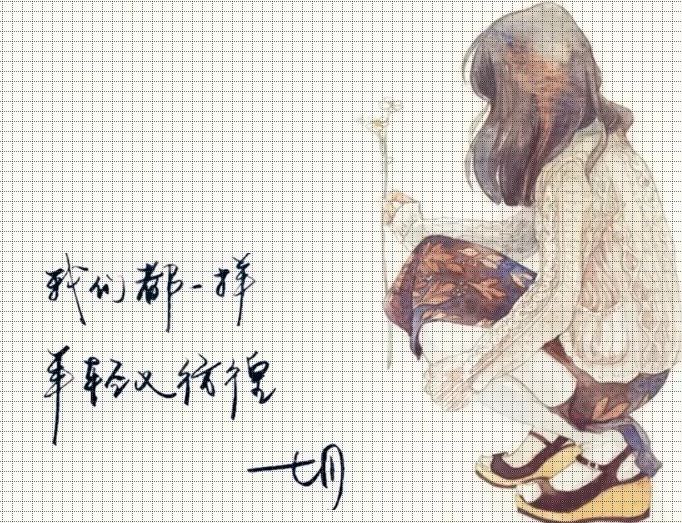 我们都一样
年轻又彷徨
七月